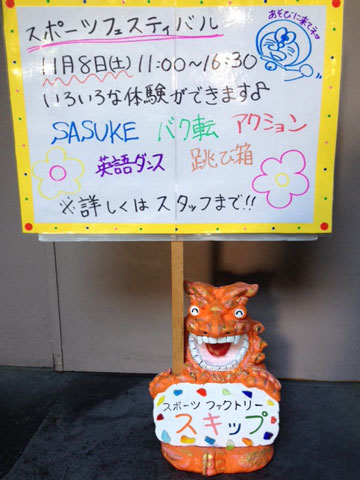 スポーツフェスティバル
あそびに来てネ
11月8日(土)11:00〜16:30
いろいろな体験ができます♪
SASUKE バク転 アクション
英語ダンス 跳び箱
※詳しくはスタッフまで!!
スポーツ ファクトリー
スキップ